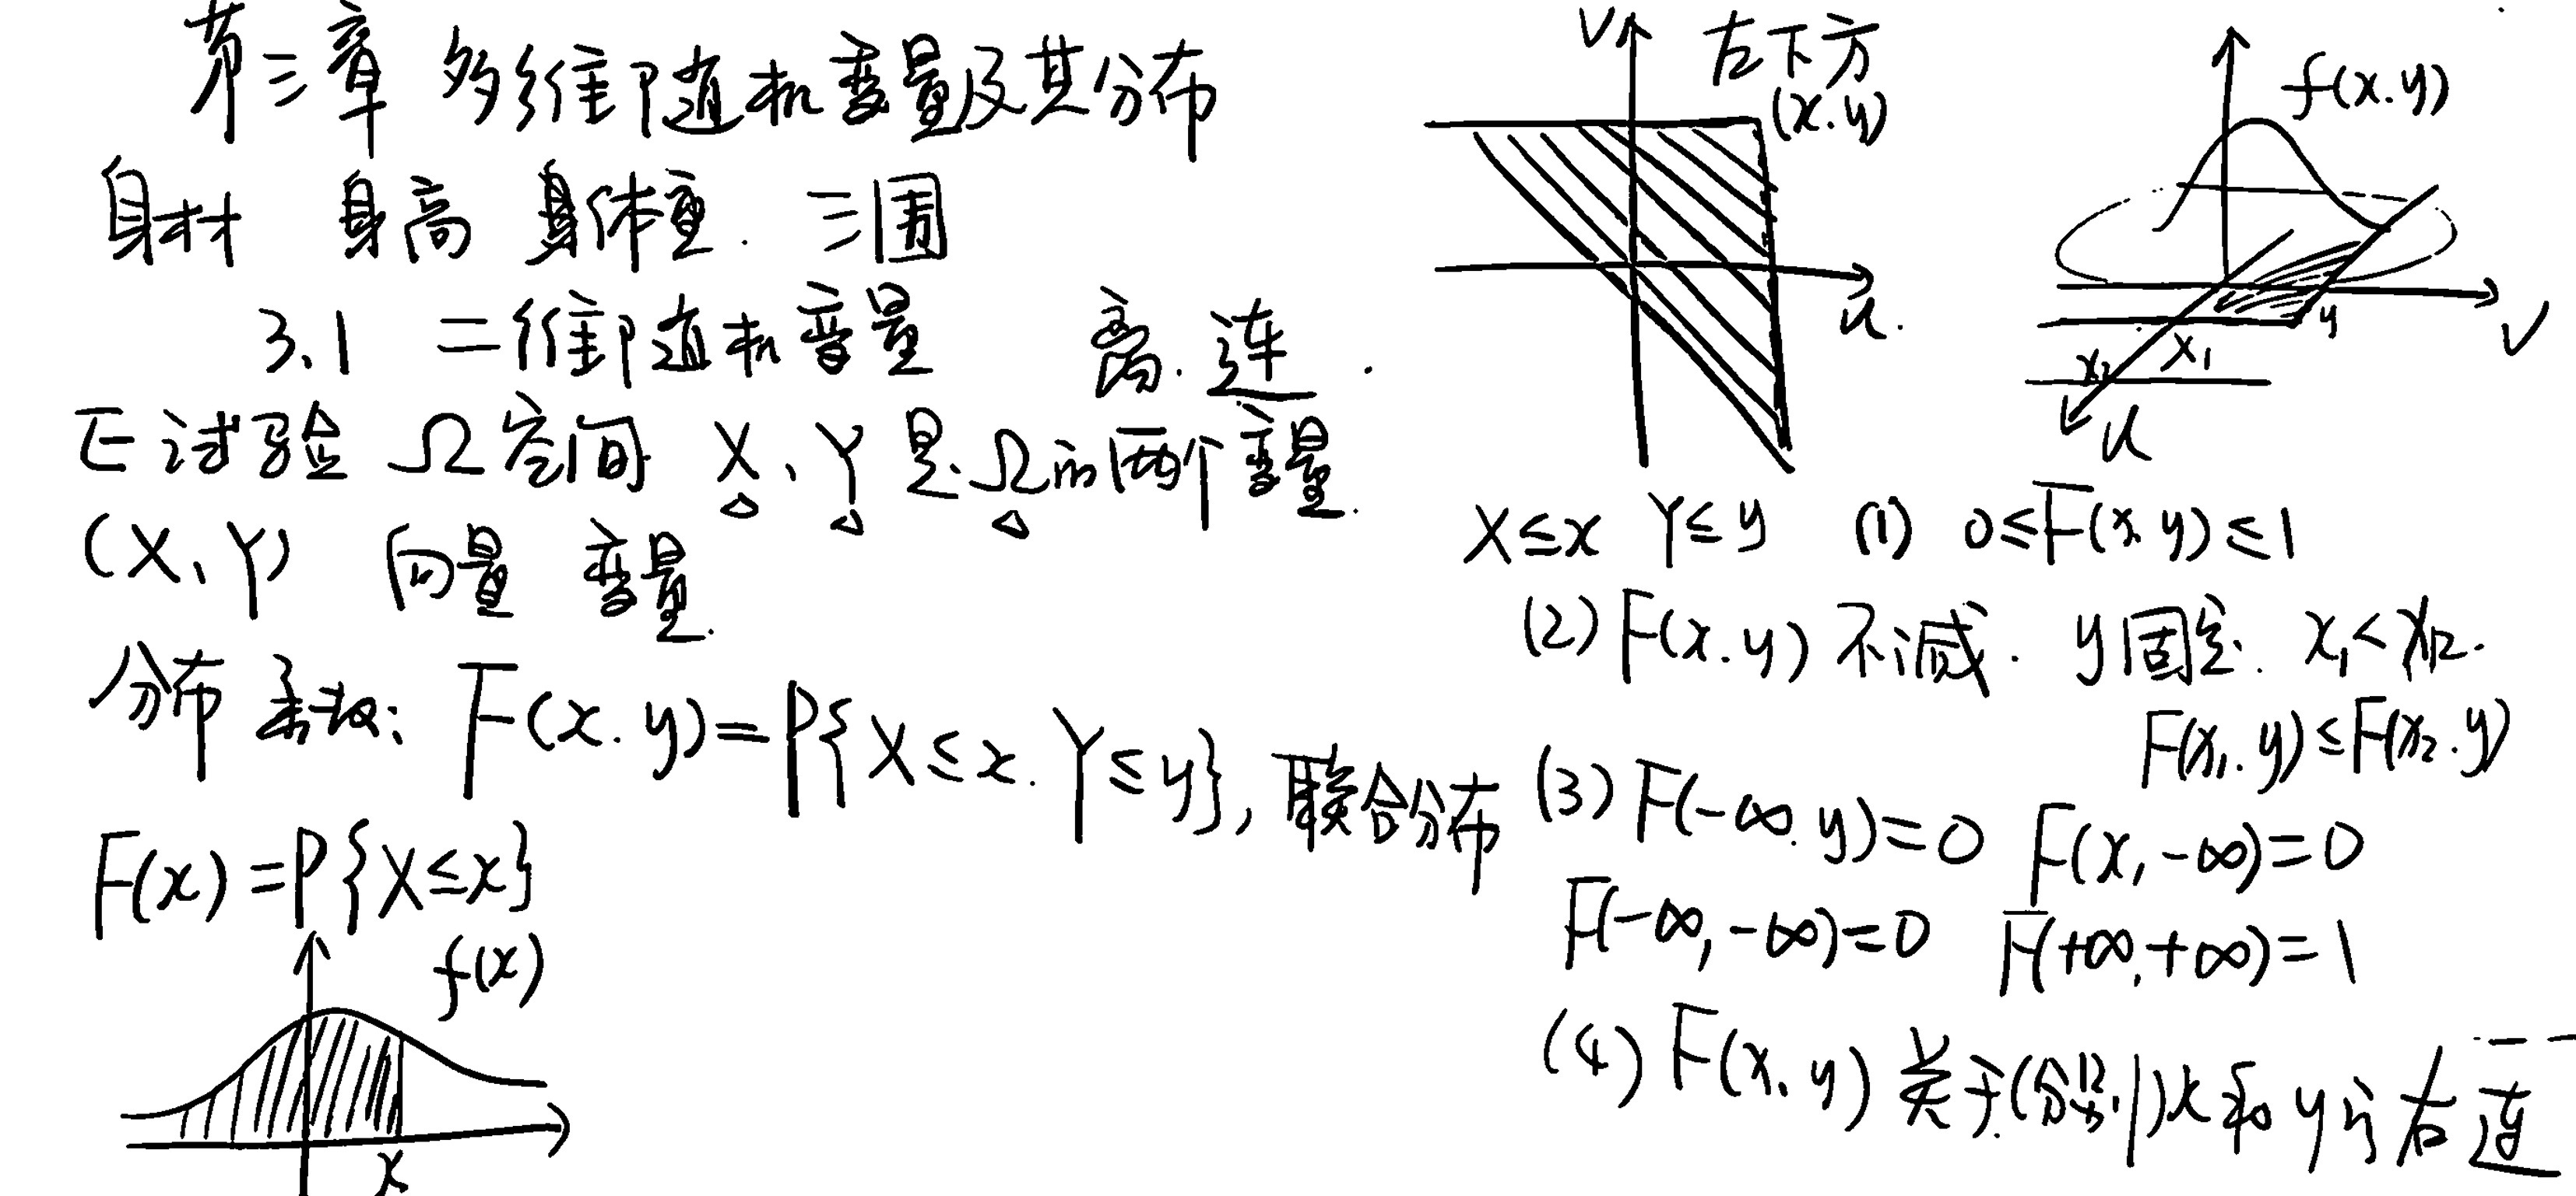 第三章 多维随机变量及其分布
身材 身高 体重. 三围
3.1 二维随机变量 离. 连.
E 试验 Ω空间 X、Y 是Ω的两个变量.
(X、Y) 向量 变量.
分布函数: F(x.y)=P{X≤x. Y≤y}, 联合分布
F(x)=P{X≤x}
f(x)
x
V
左下方
(x.y)
u.
f(x.y)
y
V
x₁
x₂
u
X≤x Y≤y (1) 0≤F(x.y)≤1
(2) F(x.y) 不减. y固定. x₁<x₂.
F(x₁.y)≤F(x₂.y)
(3) F(-∞.y)=0 F(x,-∞)=0
F(-∞,-∞)=0 F(+∞,+∞)=1
(4) F(x.y) 关于(分别)x和y 右连